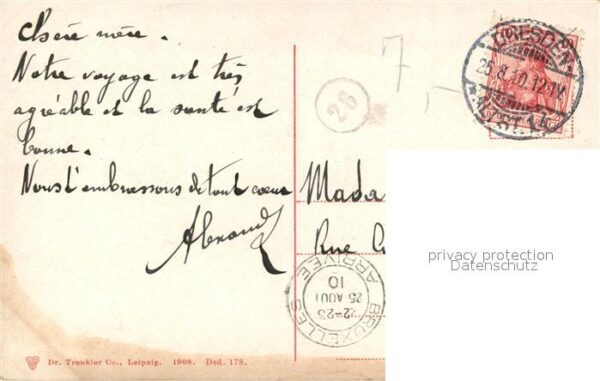 Chère mère.
Notre voyage est très
agréable et la santé est
bonne.
Nous t'embrassons de tout coeur
Alexandr
7
26
DRESDEN
25.8.10.12-1
ALTST.
Mada
Rue
BRUXELLES
22-23
25 AOUT
10
ARRIVÉE
privacy protection
Datenschutz
Dr. Trenkler Co., Leipzig. 1908. Dsd. 178.